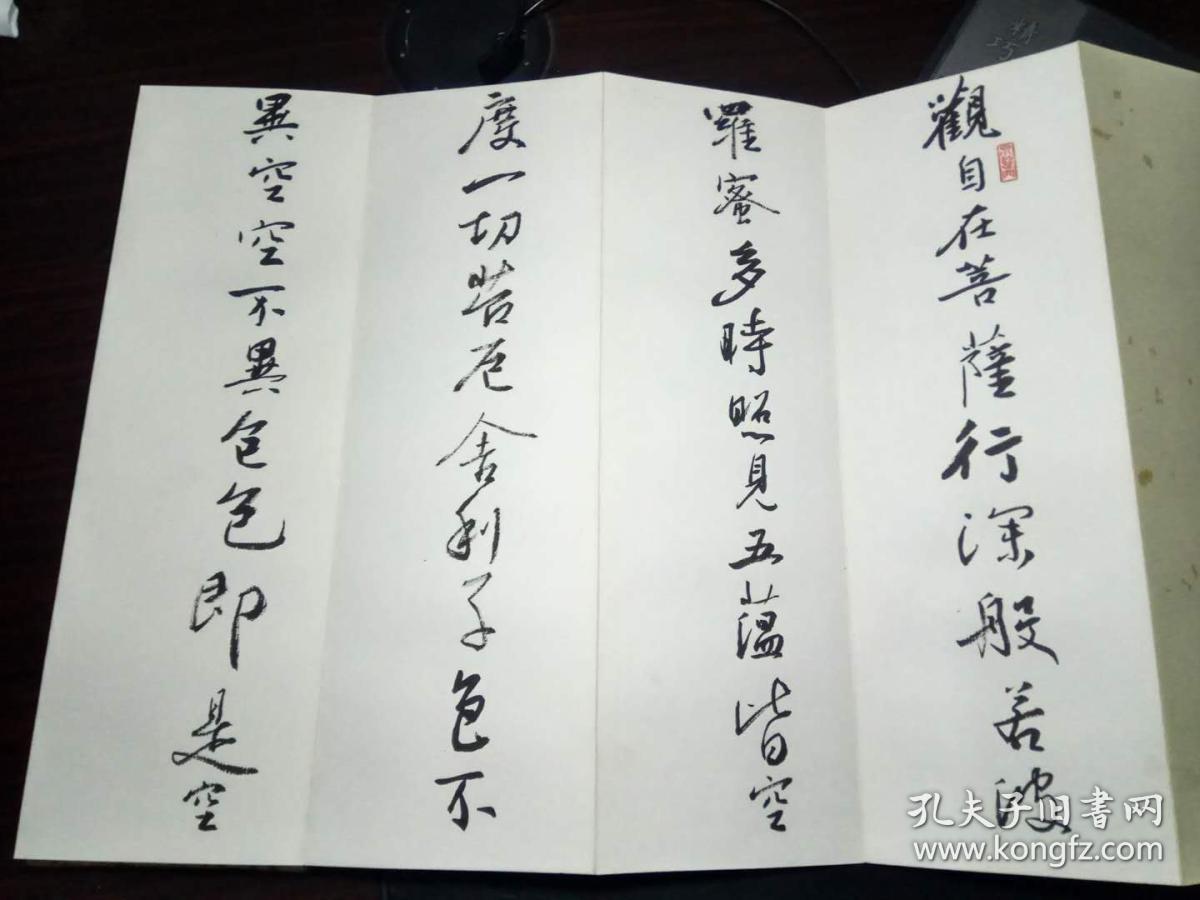 觀自在菩薩行深般若波
羅蜜多時照見五蘊皆空
度一切苦厄舍利子色不
異空空不異色色即是空
孔夫子旧书网
www.kongfz.com